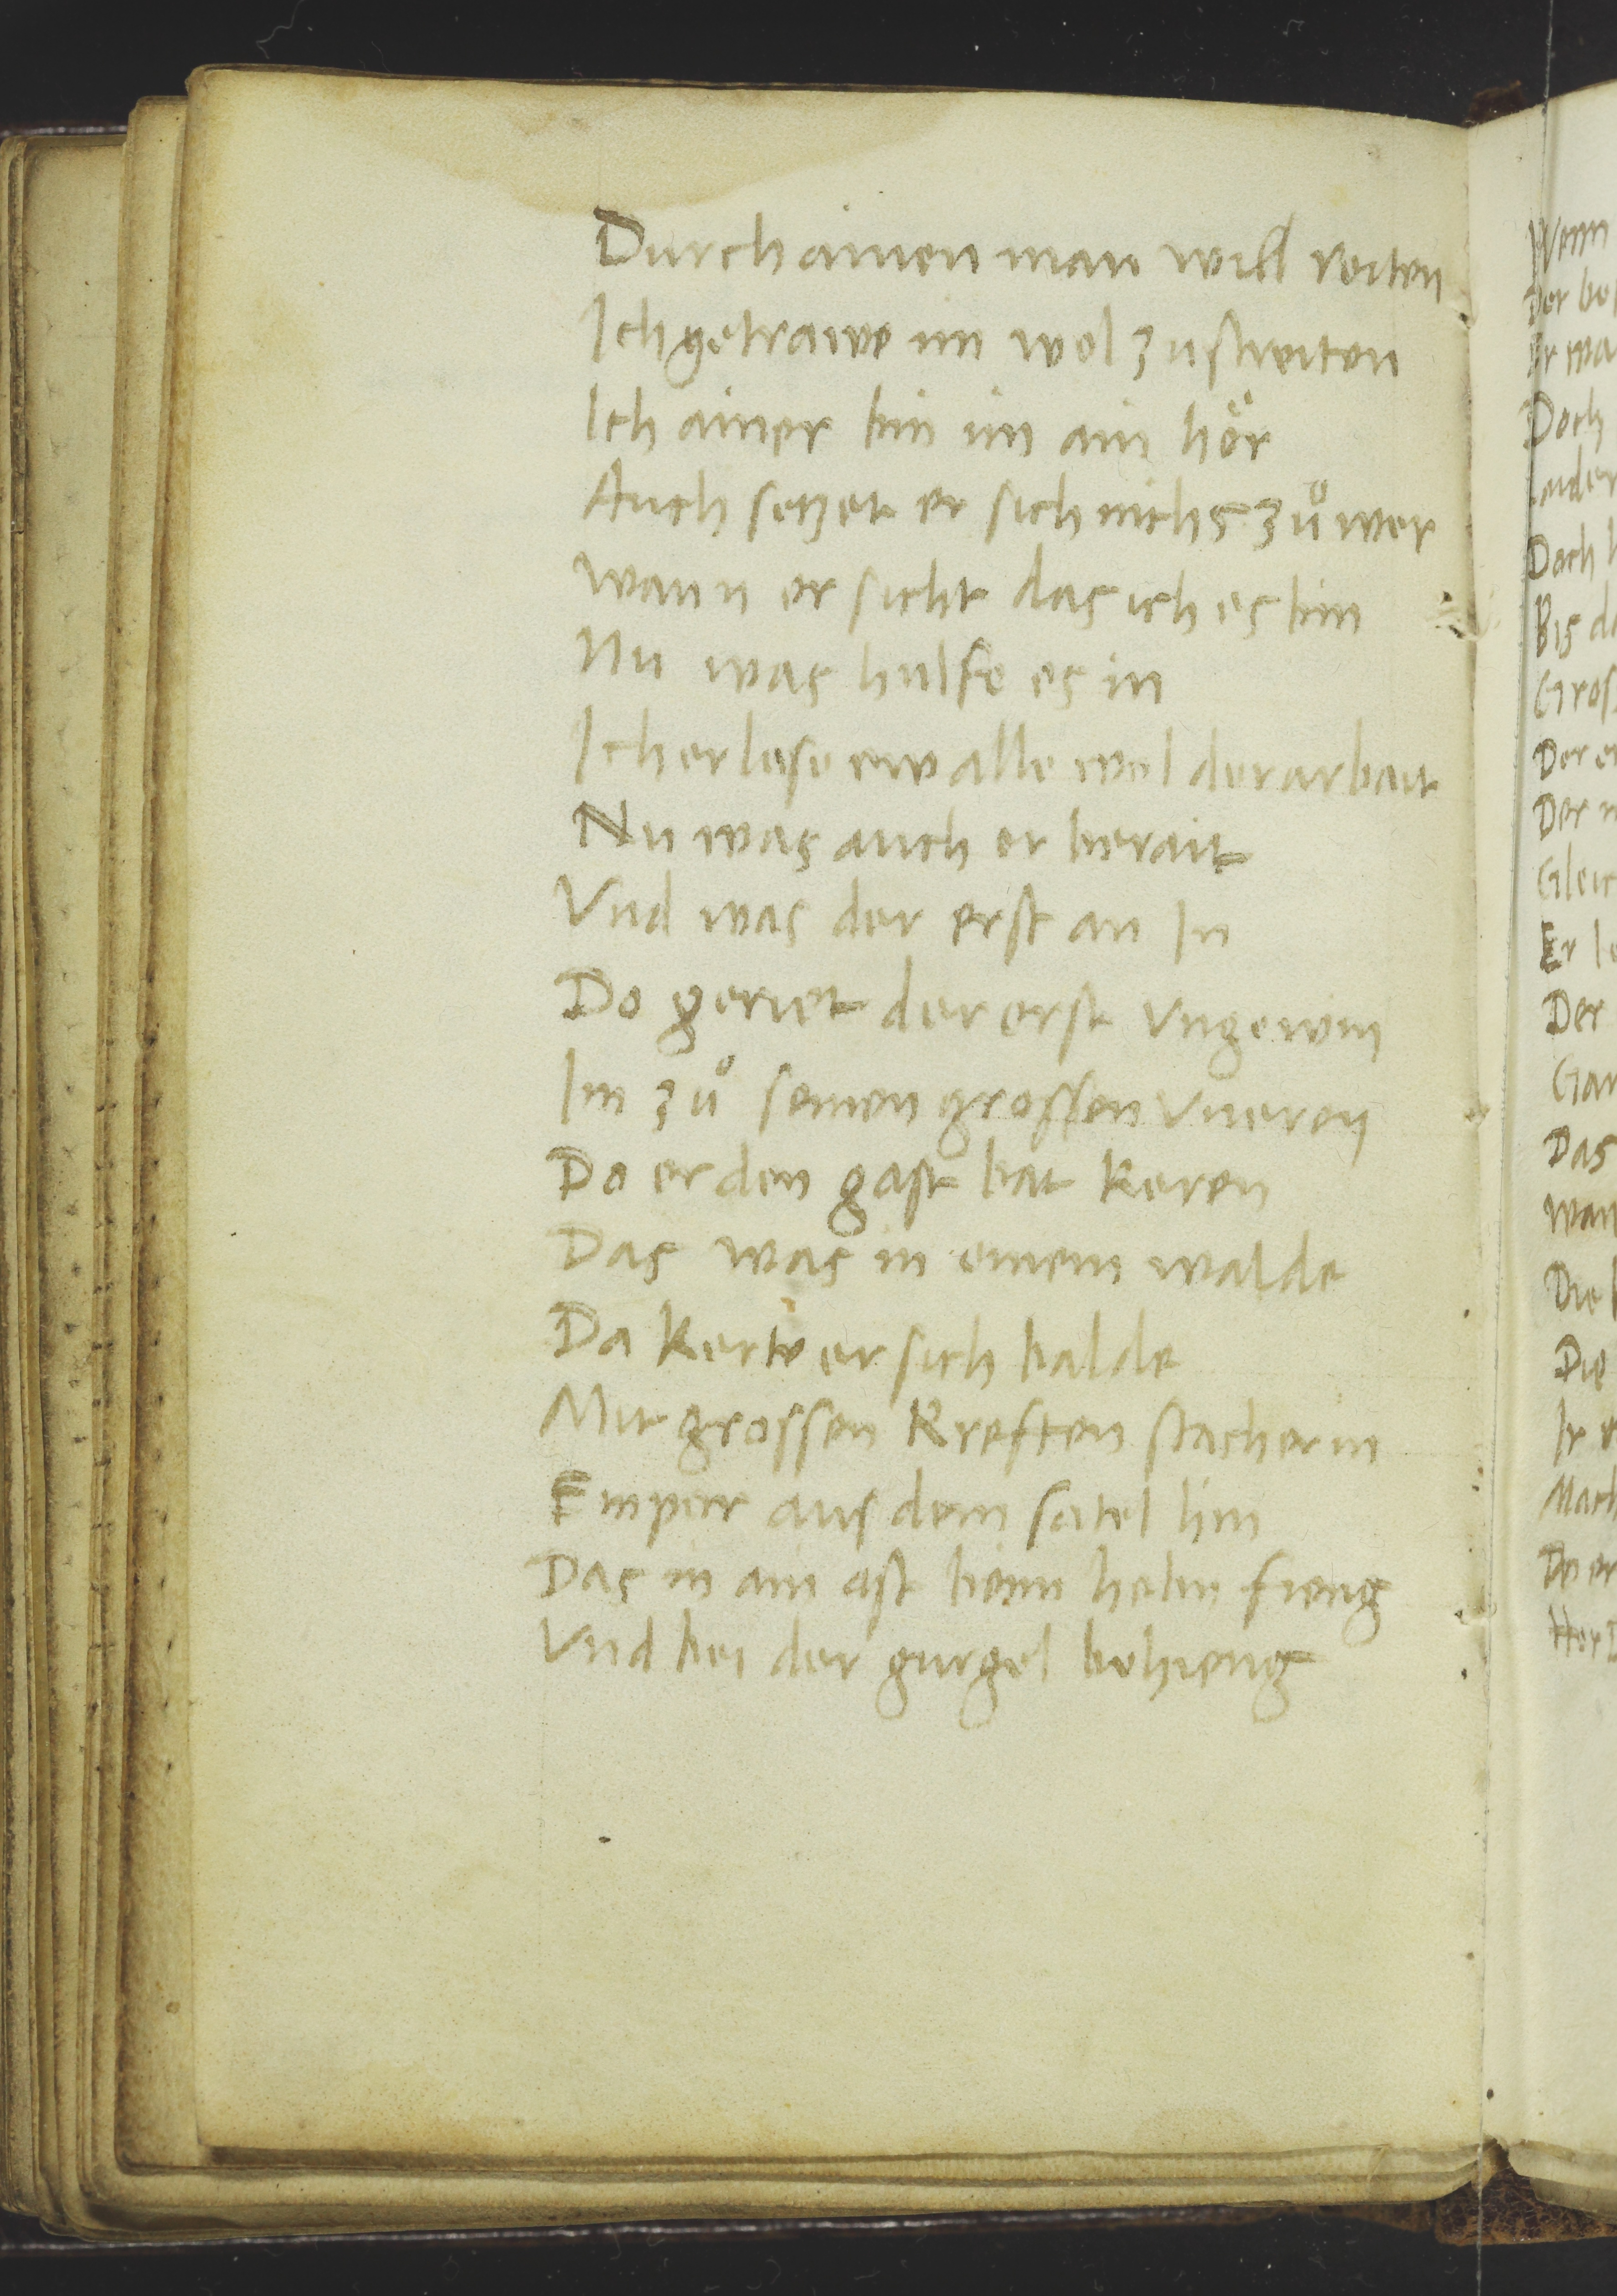 Durch ainen man will reiten
Ich getrawe im wol zu streiten
Ich ainer bin im ain hör
Auch setzet er sich nichs zů wer
wann er sicht das ich es bin
Nu was hulfe es in
Ich erlese ew alle wol der arbait
Nu was auch er berait
Vnd was der erst an In
Do geriet der erst vngewin
Im zů seinen grossen vneren
Do er den gast bat keren
Das was in einem walde
Da kerte er sich balde
Mit grossen kreften stach er in
Empor aus dem satel hin
Das in ain ast beim helm fieng
Vnd bei der gurgel behieng
Wenn
Der
Er
Doch
Doch
Bis
Der
Der
Er
Der
Das
Die
Die
Ir
Do er